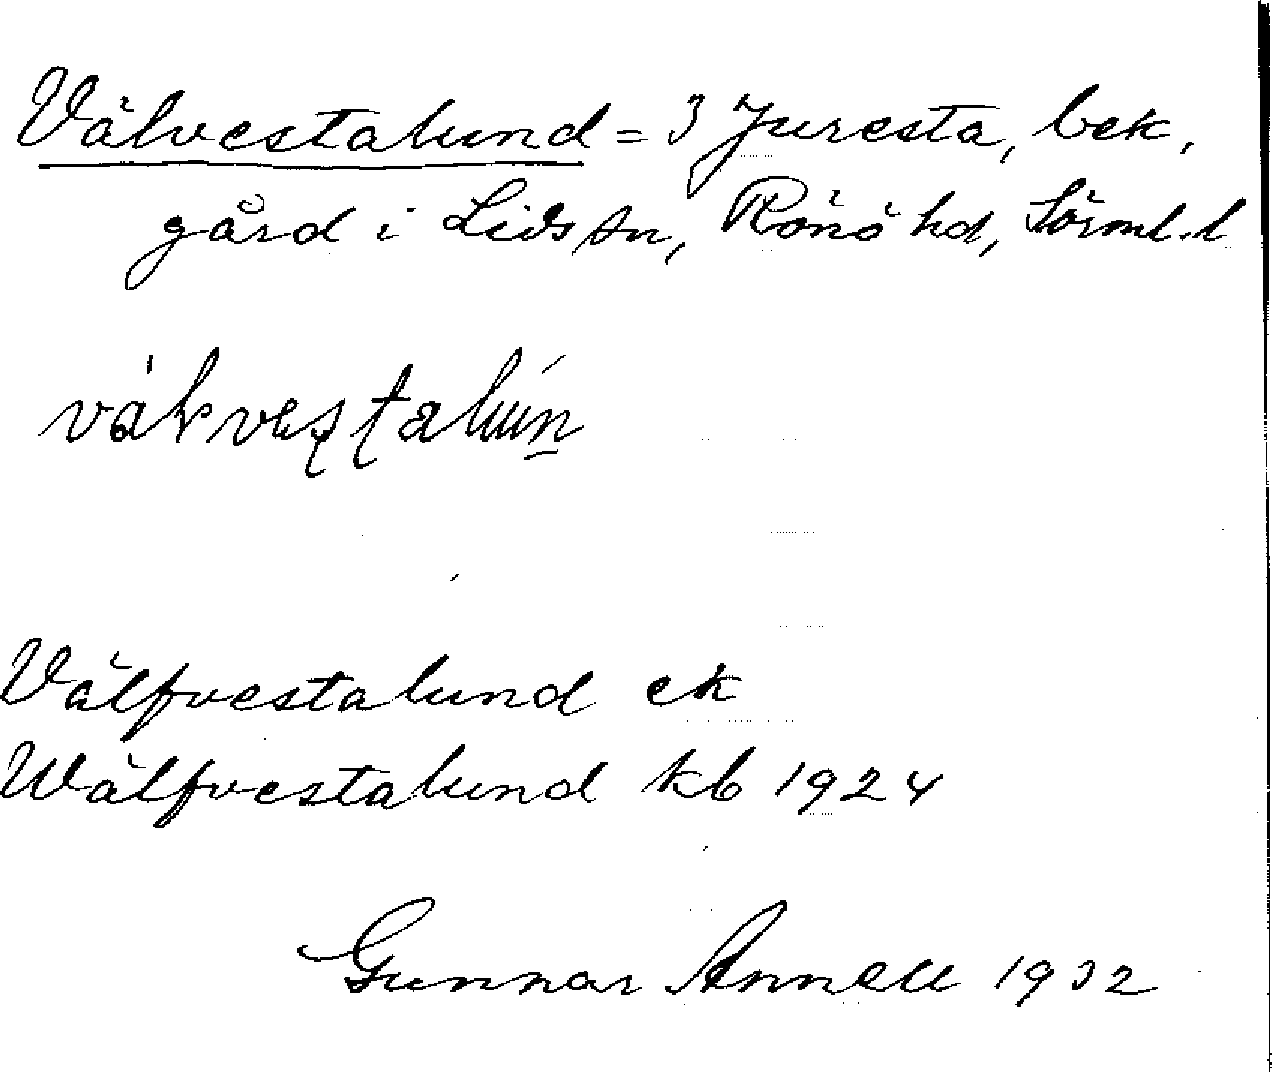 Välvestalund = 3 Juresta, bek.
gård i Lids sn, Rönö hd, Sörml. l
Välfvestalund ek
Wälfvestalund kb 1924
Gunnar Annell 1932